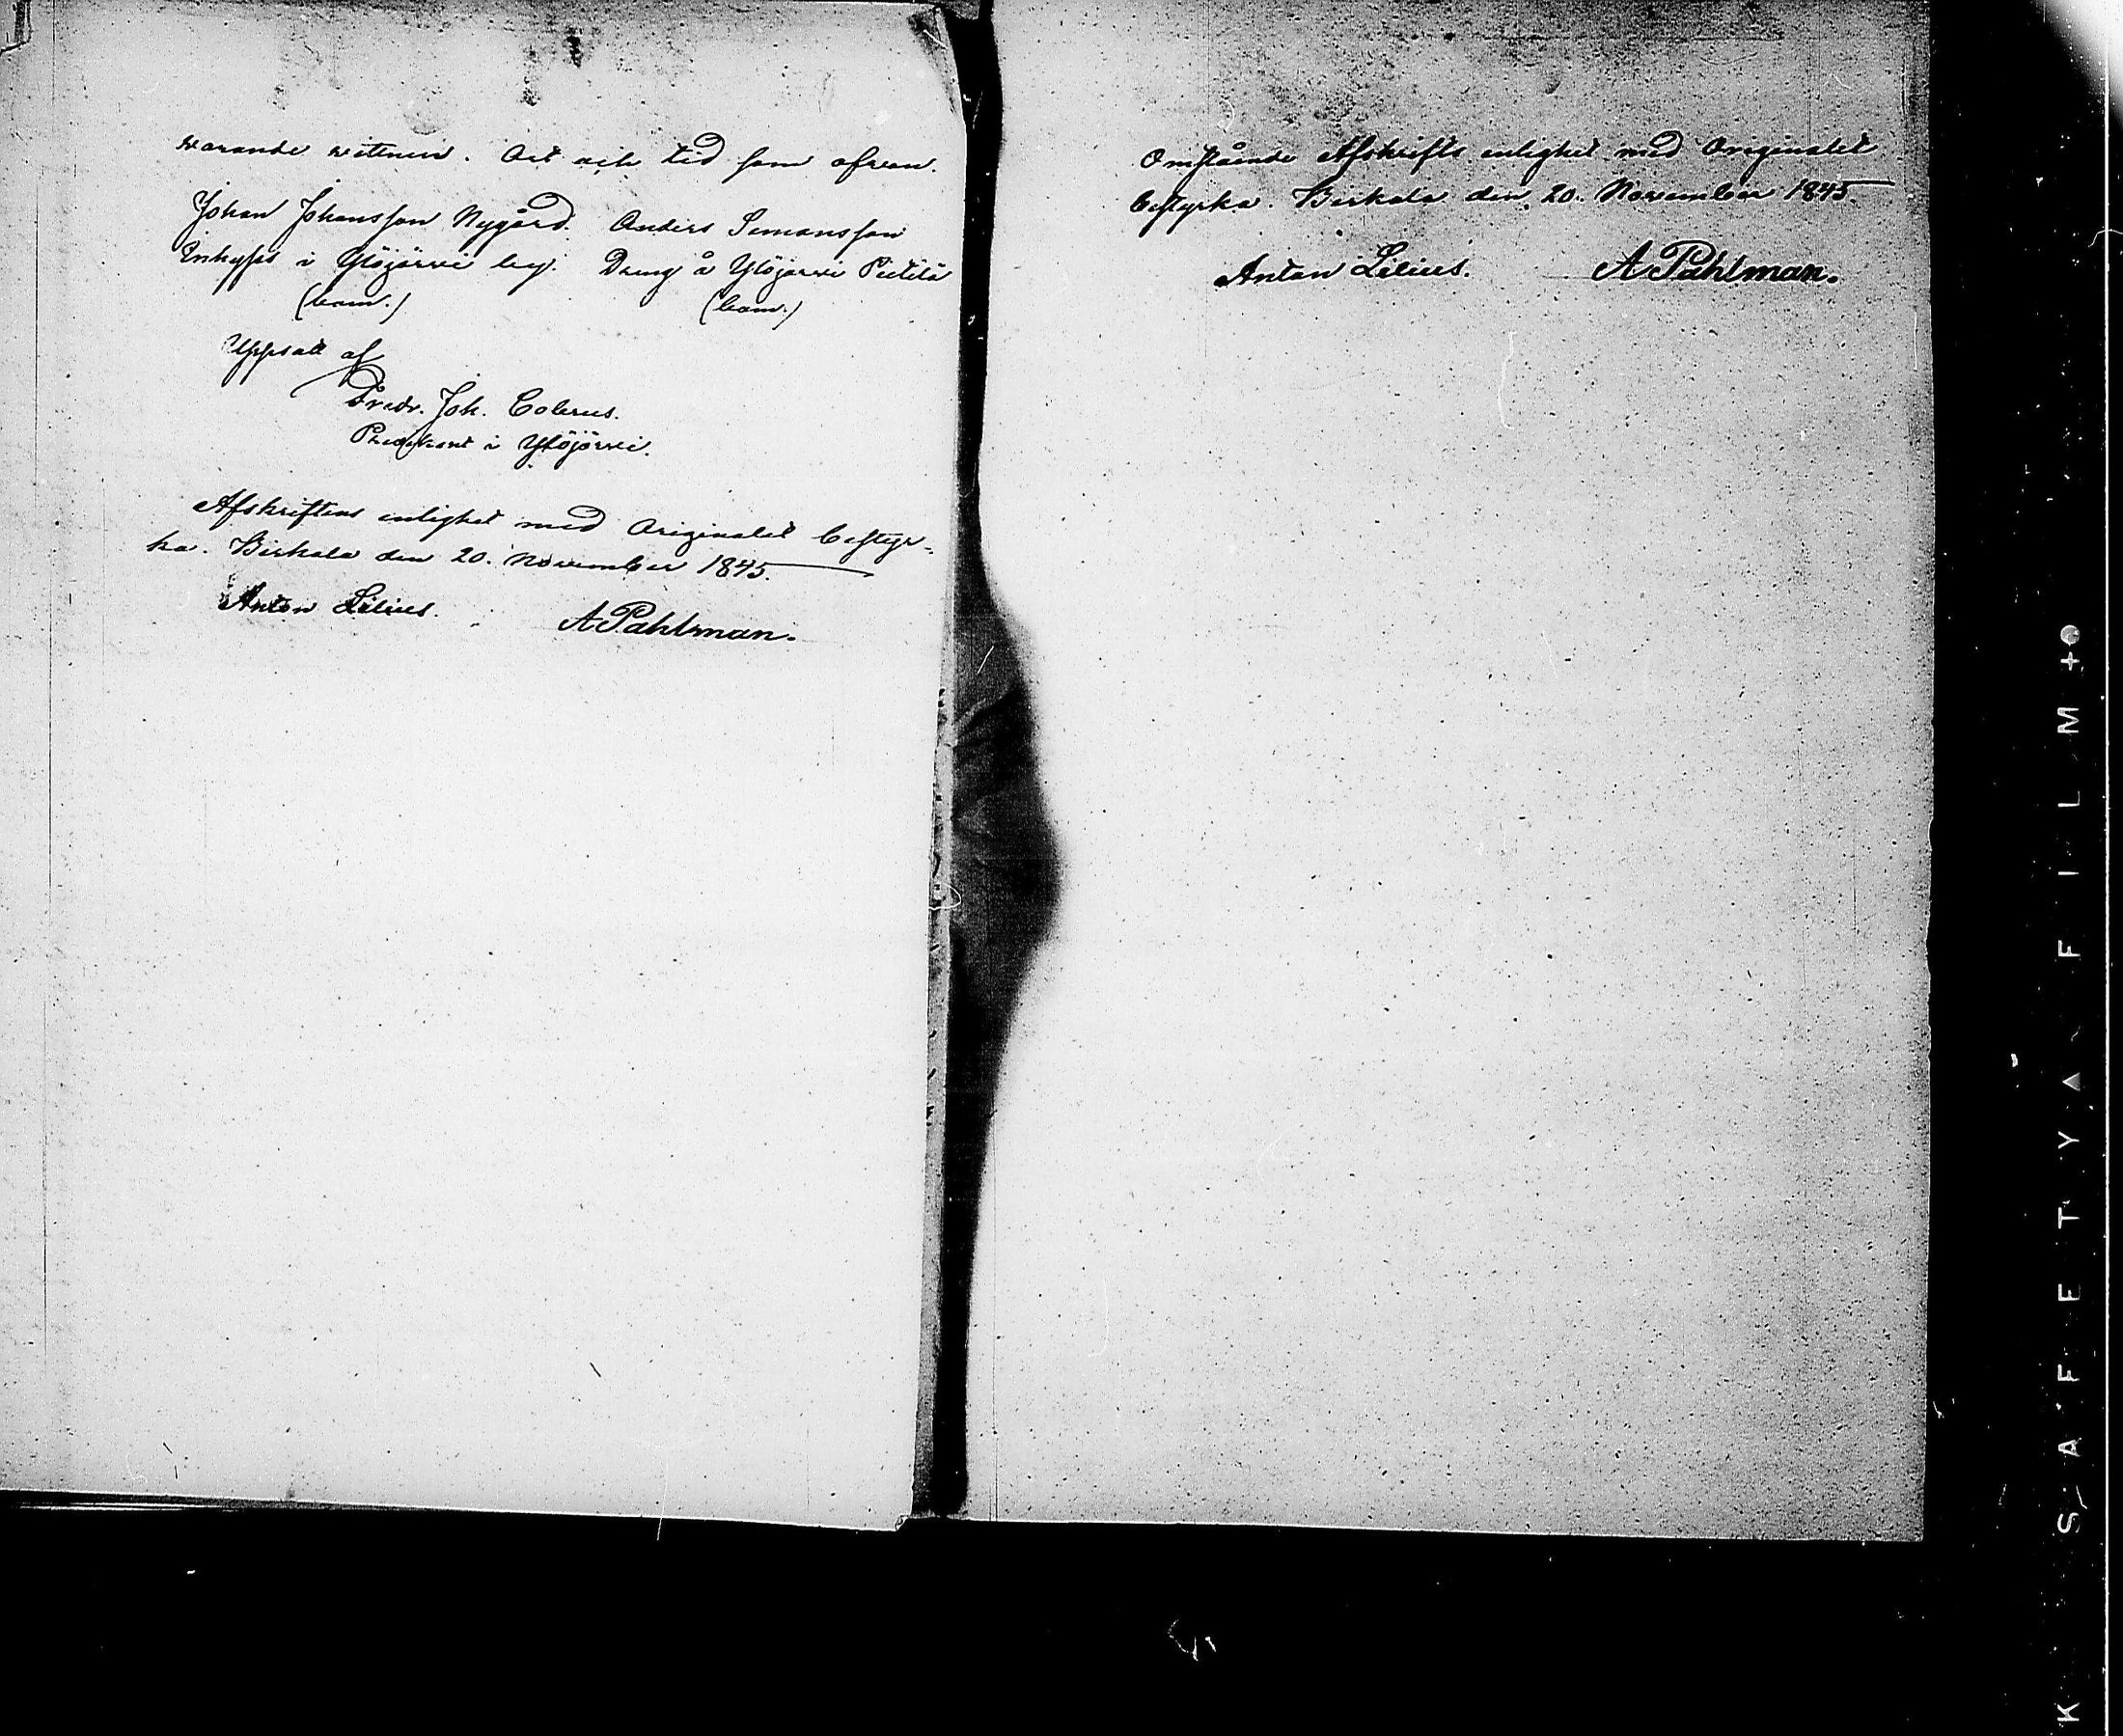 warande vittnen. Ort och tid som ofvan.
Johan Johansson Nygård. Anders Simonsson
Inhyses i Ylöjärvi by. Dräng å Ylöjärvi Pietilä
(bom.) (bom.)
Uppsatt af
Fredr. Joh. Colerus.
Predikant i Ylöjärvi.
Afskriftens enlighet med Originalet bestyr-
ka. Birkala den 20. November 1845.
Anton Lilius. A Pahlman.
Omstående Afskrifts enlighet med Originalet
bestyrka. Birkala den 20. November 1845.
Anton Lilius. A Pahlman.
K SAFETY A FILM